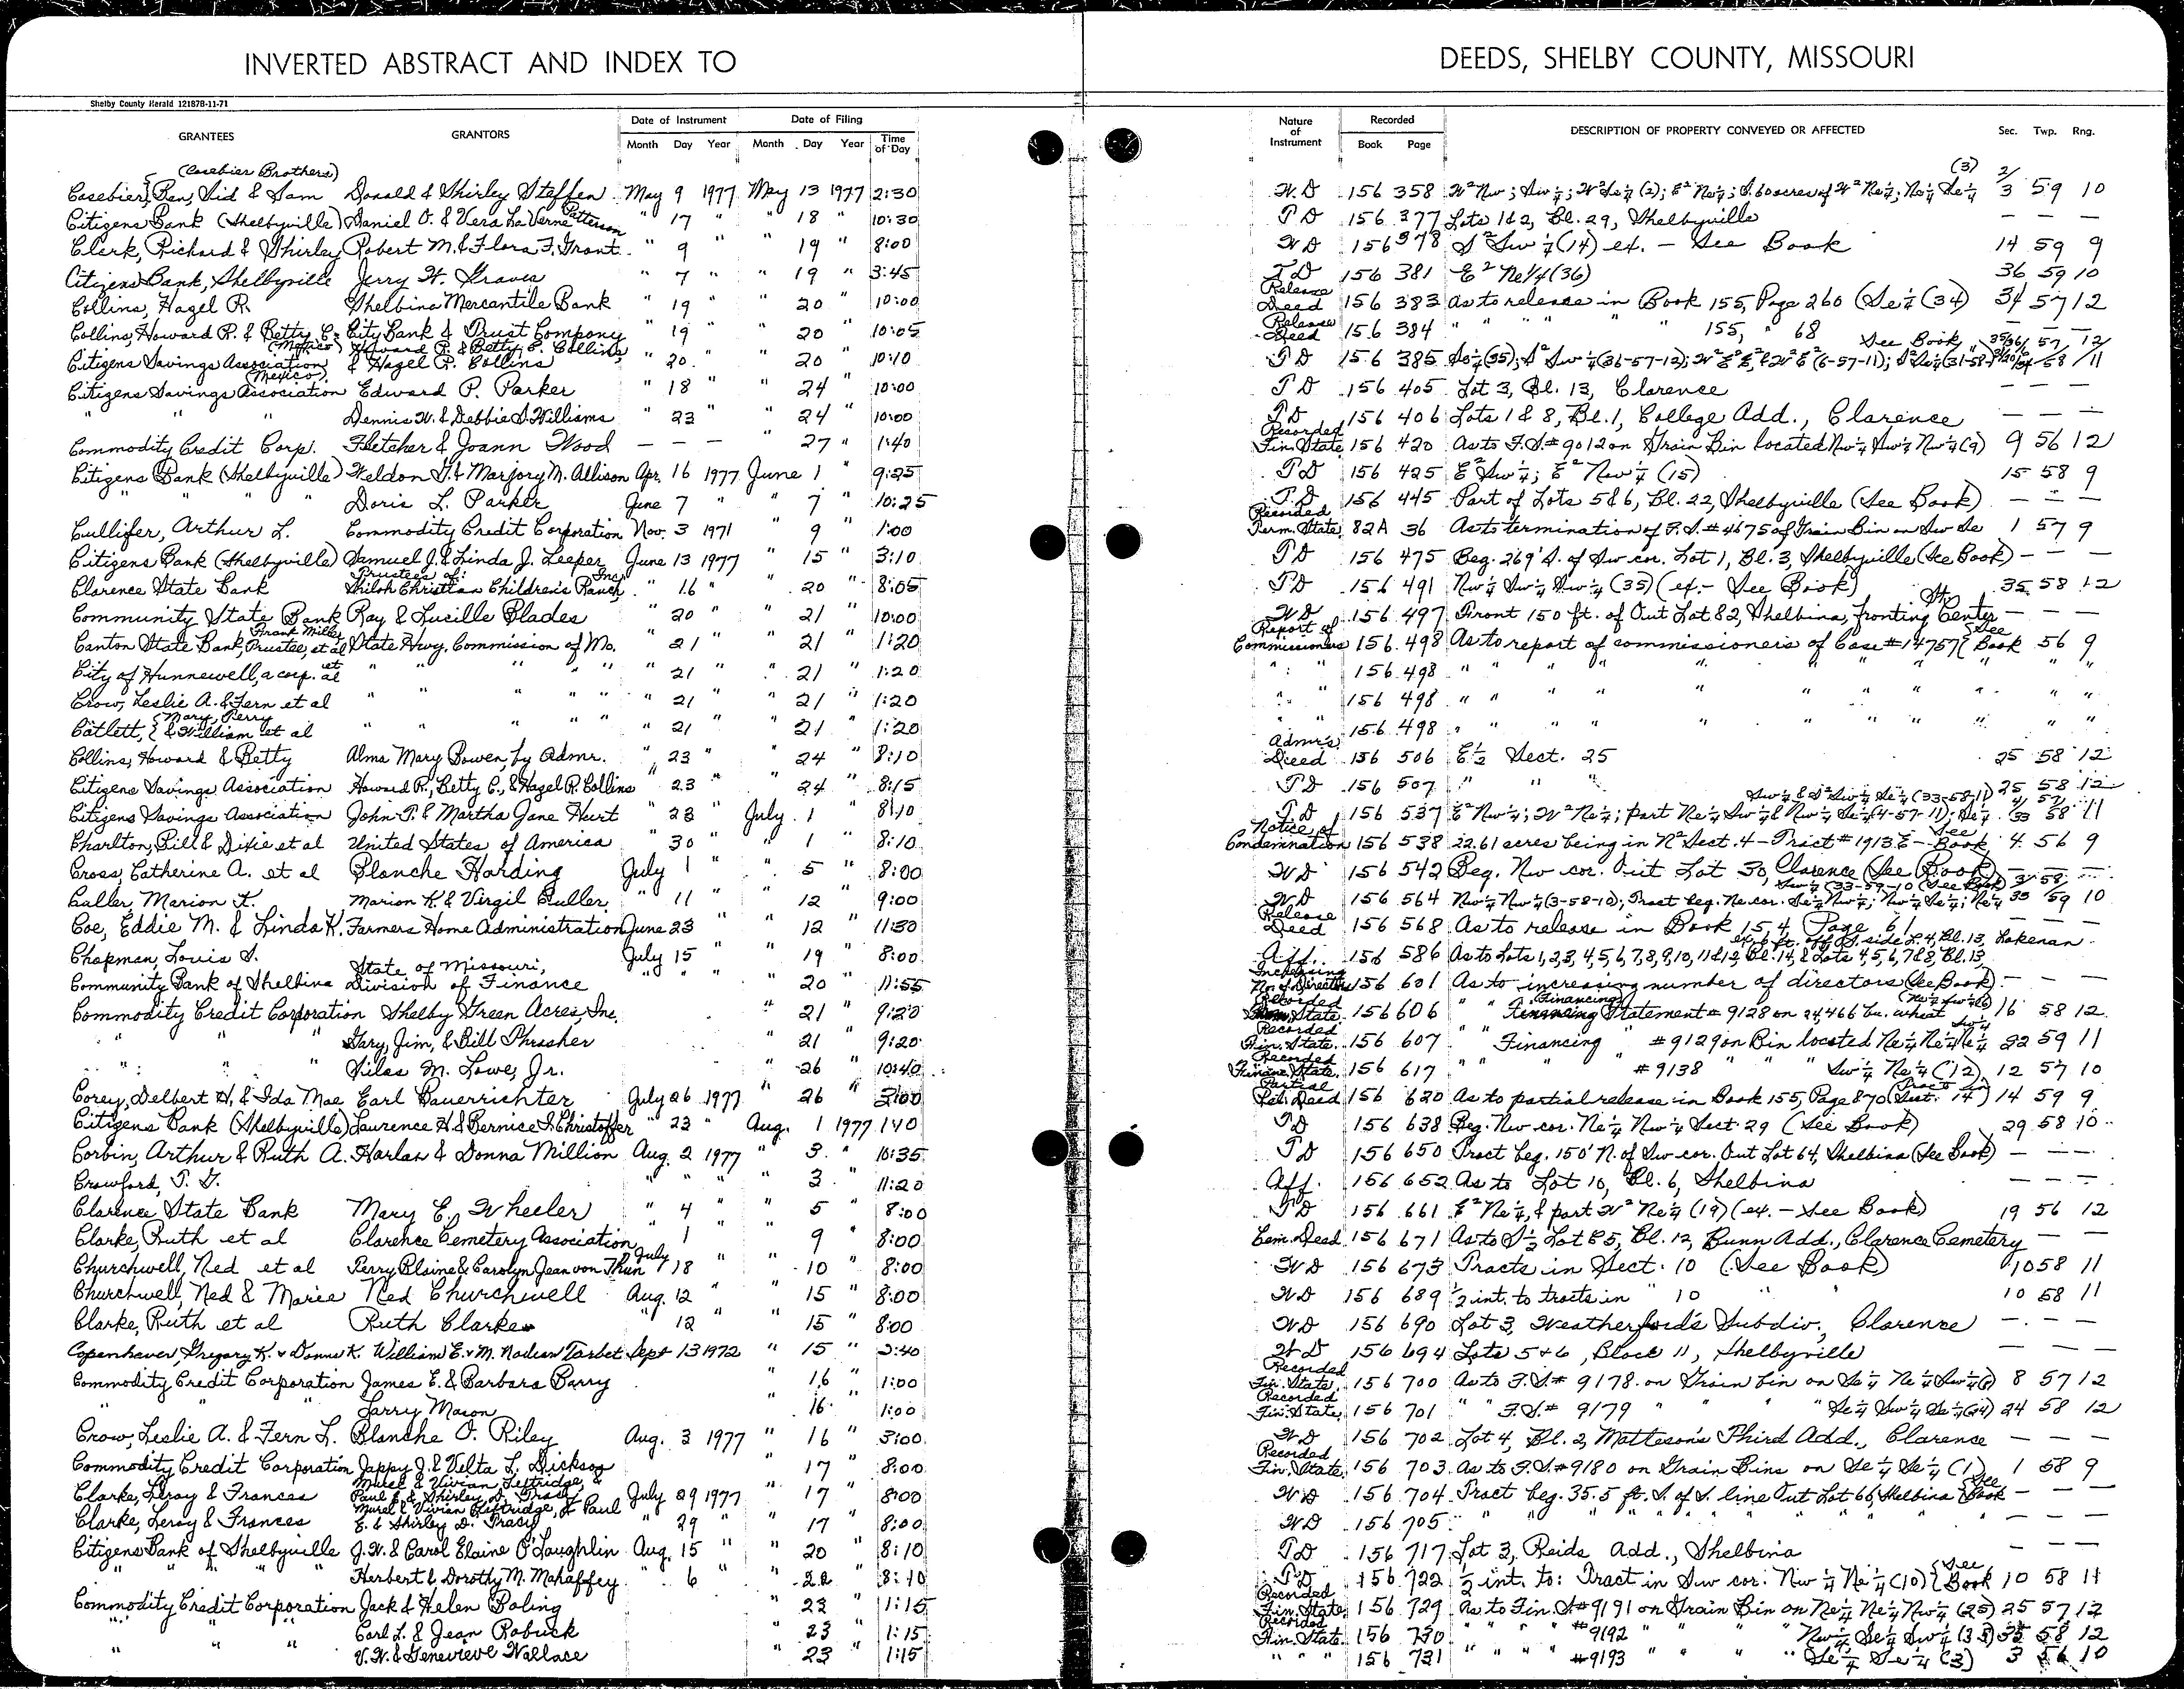 INVERTED ABSTRACT AND INDEX TO DEEDS, SHELBY COUNTY, MISSOURI
Shelby County Herald 121878-11-71
GRANTEES GRANTORS Date of Instrument Date of Filing Nature of Instrument Recorded DESCRIPTION OF PROPERTY CONVEYED OR AFFECTED Sec. Twp. Rng.
Month Day Year Month Day Year Time of Day Book Page
(Casebier Brothers) (3) 2/
Casebier, Ben, Sid & Sam Donald & Shirley Steffen May 9 1977 May 13 1977 2:30 W.D 156 358 W² Nw; Sw¼; W² Se¼ (2); E² Ne¼; S. 60 acres of W² Ne¼; Ne¼ Se¼ 3 59 10
Citizens Bank (Shelbyville) Daniel O. & Vera LaVerne Patterson " 17 " " 18 " 10:30 T D 156 377 Lots 1&2, Bl. 29, Shelbyville — — —
Clark, Richard & Shirley Robert M. & Flora F. Grant " 9 " " 19 " 8:00 W D 156 378 S² Sw ¼ (14) ex. - See Book 14 59 9
Citizens Bank, Shelbyville Jerry W. Graves " 7 " " 19 " 3:45 T D 156 381 E² Ne1/4 (36) 36 59 10
Collins, Hazel R. Shelbina Mercantile Bank " 19 " " 20 " 10:00 Release Deed 156 383 as to release in Book 155, Page 260 (Se¼ (34) 34 57 12
Collins, Howard R. & Betty C. City Bank & Trust Company " 19 " " 20 " 10:05 Release Deed 156 384 " " " " " 155, " 68 — — —
Citizens Savings Association (Mexico) Howard R. & Betty C. Collins & Hazel R. Collins " 20 " " 20 " 10:10 T D 156 385 Se¼ (35); S² Sw ¼ (36-57-12); See Book
Citizens Savings Association (Mexico) Edward P. Parker " 18 " " 24 " 10:00 T D 156 405 Lot 3, Bl. 13, Clarence
" " " Dennis W. & Debbie S. Williams " 23 " " 24 " 10:00 T D 156 406 Lots 1 & 8, Bl. 1, College Add., Clarence — — —
Commodity Credit Corp. Fletcher & Joann Wood — — — " 27 " 1:40 Recorded Fin. State 156 420 As to F.S.# 9012 on Grain Bin located Nw¼ Sw¼ Nw¼ (9) 9 56 12
Citizens Bank (Shelbyville) Weldon T. & Marjory M. Allison Apr. 16 1977 June 1 " 9:25 T D 156 425 E² Sw ¼; E² Nw ¼ (15) 15 58 9
" " " Doris L. Parker June 7 " " 7 " 10:25 T.D 156 445 Part of Lots 5&6, Bl. 22, Shelbyville (See Book) — — —
Cullifer, Arthur L. Commodity Credit Corporation Nov. 3 1971 " 9 " 1:00 Recorded Term. State 82A 36 As to termination of F.S.# 4675 of Grain Bin on Sw Se 1 57 9
Citizens Bank (Shelbyville) Samuel J. & Linda J. Leeper June 13 1977 " 15 " 3:10 T D 156 475 Beg. 269' S. of Sw cor. Lot 1, Bl. 3, Shelbyville (See Book) — — —
Clarence State Bank Trustees of: Shiloh Christian Children's Ranch, Inc. " 16 " " 20 " 8:05 T D 156 491 Nw¼ Sw ¼ Sw ¼ (35) (ex. - See Book) 35 58 12
Community State Bank Ray & Lucille Blades " 20 " " 21 " 10:00 W D 156 497 Front 150 ft. of Out Lot 82, Shelbina, fronting Center St. — — —
Canton State Bank, Frank Miller Trustee, et al State Hwy. Commission of Mo. " 21 " " 21 " 1:20 Report of Commissioners 156 498 As to report of commissioners of Case #14757 (See Book 56 9
City of Hunnewell, a corp. et al " " " " " 21 " " 21 " 1:20 " " 156 498 " " " " " " " " " "
Crow, Leslie A. & Fern et al " " " " " 21 " " 21 " 1:20 " " 156 498 " " " " " " " " " "
Catlett, {Mary, Perry & William et al " " " " " 21 " " 21 " 1:20 " " 156 498 " " " " " " " " " "
Collins, Howard & Betty Alma Mary Bowen, by Admr. " 23 " " 24 " 8:10 Admr's Deed 156 506 E½ Sect. 25 25 58 12
Citizens Savings Association Howard R., Betty C., & Hazel R. Collins " 23 " " 24 " 8:15 T D 156 507 " " " 25 58 12
Citizens Savings Association John T. & Martha Jane Hurt " 28 " July 1 " 8:10 T D 156 537 E² Nw ¼; W² Ne ¼; part Ne ¼ Sw ¼ & Nw ¼ Se¼ (4-57-11); Se¼ Sw¼ & S² Sw¼ Se¼ (33-58-11) 4/33 57/58 11
Charlton, Bill & Dixie et al United States of America " 30 " " 1 " 8:10 Notice of Condemnation 156 538 22.61 acres being in N² Sect. 4 - Tract # 1913E - See Book 4 56 9
Cross, Catherine A. et al Blanche Harding July 1 " " 5 " 8:00 W D 156 542 Beg. Nw cor. Out Lot 30, Clarence (See Book) — — —
Culler, Marion K. Marion K. & Virgil Culler " 11 " " 12 " 9:00 W D 156 564 Nw¼ Nw¼ (3-58-10); Tract beg. Ne cor. Se¼ Nw¼; Nw¼ Se¼; Ne¼ Sw¼ (33-59-10 (See Book) 3/33 58/59 10
Coe, Eddie M. & Linda K. Farmers Home Administration June 23 " " 12 " 11:30 Release Deed 156 568 As to release in Book 154, Page 61
Chapman, Louis S. July 15 " " 19 " 8:00 Aff. 156 586 As to Lots 1,2,3,4,5,6,7,8,9,10,11&12, Bl. 14, & Lots 4,5,6,7&8, Bl. 13, ex. 6 ft. off S. side L. 4, Bl. 13, Lakenan
Community Bank of Shelbina State of Missouri, Division of Finance " " " " 20 " 11:55 Increasing No. of Directors 156 601 As to increasing number of directors (See Book) — — —
Commodity Credit Corporation Shelby Green Acres, Inc. " 21 " 9:20 Recorded Fin. State. 156 606 " " Financing Statement # 9128 on 24,466 bu. wheat (Ne¼ Sw¼ 16) 16 58 12
" " " Gary, Jim, & Bill Thrasher 21 " 9:20 Recorded Fin. State. 156 607 " " Financing " #9129 on Bin located Ne¼ Ne¼ Ne¼ 22 59 11
" " " Silas M. Lowe, Jr. " 26 " 10:40 Recorded Financ. State. 156 617 " " " " #9138 " " Sw ¼ Ne¼ (12) 12 57 10
Corey, Delbert H. & Ida Mae Earl Bauerrichter July 26 1977 " 26 " 3:00 Partial Rel. Deed 156 620 As to partial release in Book 155, Page 870 (Tracts in Sect. 14) 14 59 9
Citizens Bank (Shelbyville) Laurence H. & Bernice I. Christoffer " 23 " Aug. 1 1977 1:40 T D 156 638 Beg. Nw cor. Ne¼ Nw ¼ Sect. 29 (See Book) 29 58 10
Corbin, Arthur & Ruth A. Harlan & Donna Million Aug. 2 1977 " 3 " 10:35 T D 156 650 Tract beg. 150' N. of Sw cor. Out Lot 64, Shelbina (See Book) — — —
Crawford, T. G. " " " " 3 " 11:20 Aff. 156 652 As to Lot 10, Bl. 6, Shelbina — — —
Clarence State Bank Mary E. Wheeler " 4 " " 5 " 8:00 T D 156 661 E² Ne¼, & part W² Ne¼ (19) (ex. - See Book) 19 56 12
Clarke, Ruth et al Clarence Cemetery Association " 1 " " 9 " 8:00 Cem. Deed 156 671 As to S½ Lot 85, Bl. 12, Bunn Add., Clarence Cemetery — —
Churchwell, Ned et al Perry Blaine & Carolyn Jean von Thun July 18 " " 10 " 8:00 W D 156 673 Tracts in Sect. 10 (See Book) 10 58 11
Churchwell, Ned & Marie Ned Churchwell Aug. 12 " " 15 " 8:00 W D 156 689 ½ int. to tracts in " 10 " " 10 58 11
Clarke, Ruth et al Ruth Clarke " 12 " " 15 " 8:00 W D 156 690 Lot 3, Weatherford's Subdiv., Clarence — — —
Copenhaver, Gregory K. & Donna K. William E. & M. Nadien Tarbet Sept 13 1972 " 15 " 2:40 W D 156 694 Lots 5 & 6, Block 11, Shelbyville — — —
Commodity Credit Corporation James E. & Barbara Barry " 16 " 1:00 Recorded Fin. State. 156 700 As to F.S.# 9178 on Grain bin on Se ¼ Ne ¼ Sw¼ (8) 8 57 12
" " " Larry Mason " 16 " 1:00 Recorded Fin. State 156 701 " " F.S.# 9179 " " " " Se¼ Sw ¼ Se ¼ (24) 24 58 12
Crow, Leslie A. & Fern L. Blanche O. Riley Aug. 3 1977 " 16 " 3:00 W D 156 702 Lot 4, Bl. 2, Matteson's Third Add., Clarence — — —
Commodity Credit Corporation Jappy J. & Velta L. Dickson " 17 " 8:00 Recorded Fin. State 156 703 As to F.S.# 9180 on Grain Bins on Se ¼ Se ¼ (1) 1 58 9
Clarke, Leroy & Frances Murel & Vivian Leftridge, Paul E. & Shirley D. Tracy July 29 1977 " 17 " 8:00 W D 156 704 Tract beg. 35.5 ft. S. of S. line Out Lot 66, Shelbina (See Book — — —
Clarke, Leroy & Frances Murel & Vivian Leftridge, & Paul E. & Shirley D. Tracy " 29 " " 17 " 8:00 W D 156 705 " " " " " " " " " — — —
Citizens Bank of Shelbyville J.W. & Carol Elaine O'Laughlin Aug. 15 " " 20 " 8:10 T D 156 717 Lot 3, Reids Add., Shelbina — — —
" " " " Herbert & Dorothy M. Mahaffey " 6 " " 22 " 8:10 T D 156 722 ½ int. to: Tract in Sw cor. Nw ¼ Ne ¼ (10) {See Book 10 58 11
Commodity Credit Corporation Jack & Helen Boling " 23 " 1:15 Recorded Fin. State 156 729 As to Fin. S.# 9191 on Grain Bin on Ne¼ Ne¼ Nw¼ (25) 25 57 12
" " " Earl L. & Jean Robuck " 23 " 1:15 Recorded Fin. State. 156 730 " " " " #9192 " " " Nw¼ Se¼ Sw ¼ (35) 35 58 12
" " " V.W. & Genevieve Wallace " 23 " 1:15 " " " 156 731 " " " " #9193 " " " " Se ¼ Se ¼ (3) 3 56 10